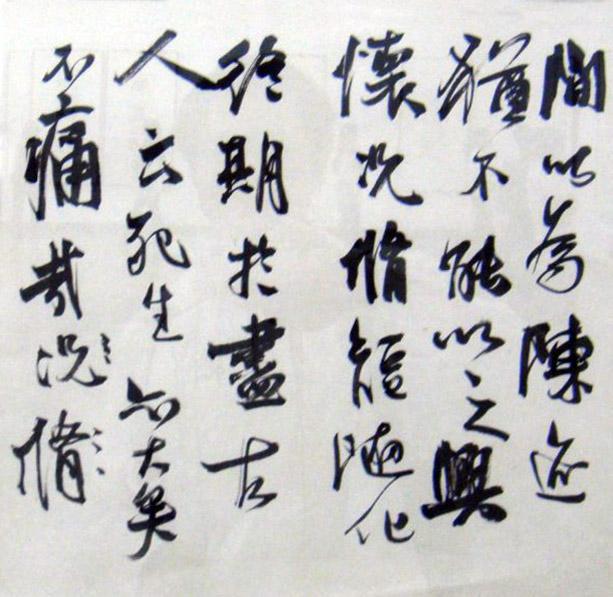 間以為陳迹
猶不能以之興
懷况脩短隨化
終期於盡古
人云死生亦大矣
不痛哉况脩